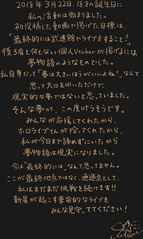 2018年3月22日、19才の誕生日に
私の活動は始まりました。
初投稿した動画で掲げた目標は、
「最終的には武道館でライブをすること!」
後ろ盾も何もない個人Vtuberが掲げるには
夢物語のようなものでした。
私自身だって「夢は大きいほうがいいよね!」なんて
思って大口をのただけで、
現実的な夢ではないと思っていました。
そんな夢が、この度叶うそうです。
みんなが応援してくれたから、
ホロライブさんが拾ってくれたから、
私が今日まで諦めずにいたから
夢物語は現実になりました。
今は「最終的には」なんて思ってません。
ここが最終の点ではなく、通過点として、
私はまだまだ挑戦を続けます!!
新星が起こす革命的なライブを
みんな見ててください!